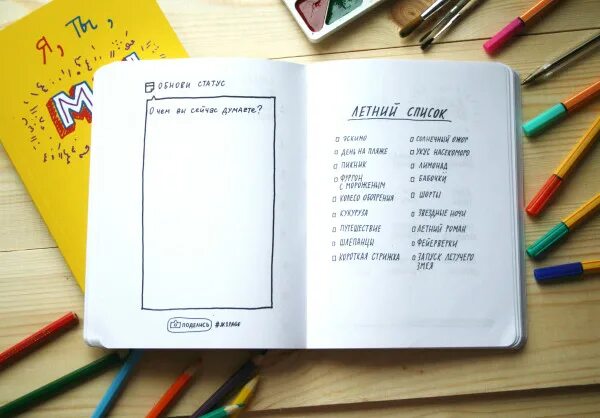 Я, ТЫ,
МЫ
ОБНОВИ СТАТУС
О чем вы сейчас думаете?
ПОДЕЛИСЬ
ЛЕТНИЙ СПИСОК
ЭСКИМО
ДЕНЬ НА ПЛЯЖЕ
ПИКНИК
ФУРГОН
С МОРОЖЕНЫМ
КОЛЕСО ОБОЗРЕНИЯ
КУКУРУЗА
ПУТЕШЕСТВИЕ
ШЛЕПАНЦЫ
КОРОТКАЯ СТРИЖКА
СОЛНЕЧНЫЙ ОЖОГ
УКУС НАСЕКОМОГО
ЛИМОНАД
БАБОЧКИ
ШОРТЫ
ЗВЕЗДНЫЕ НОЧИ
ЛЕТНИЙ РОМАН
ФЕЙЕРВЕРКИ
ЗАПУСК ЛЕТУЧЕГО
ЗМЕЯ